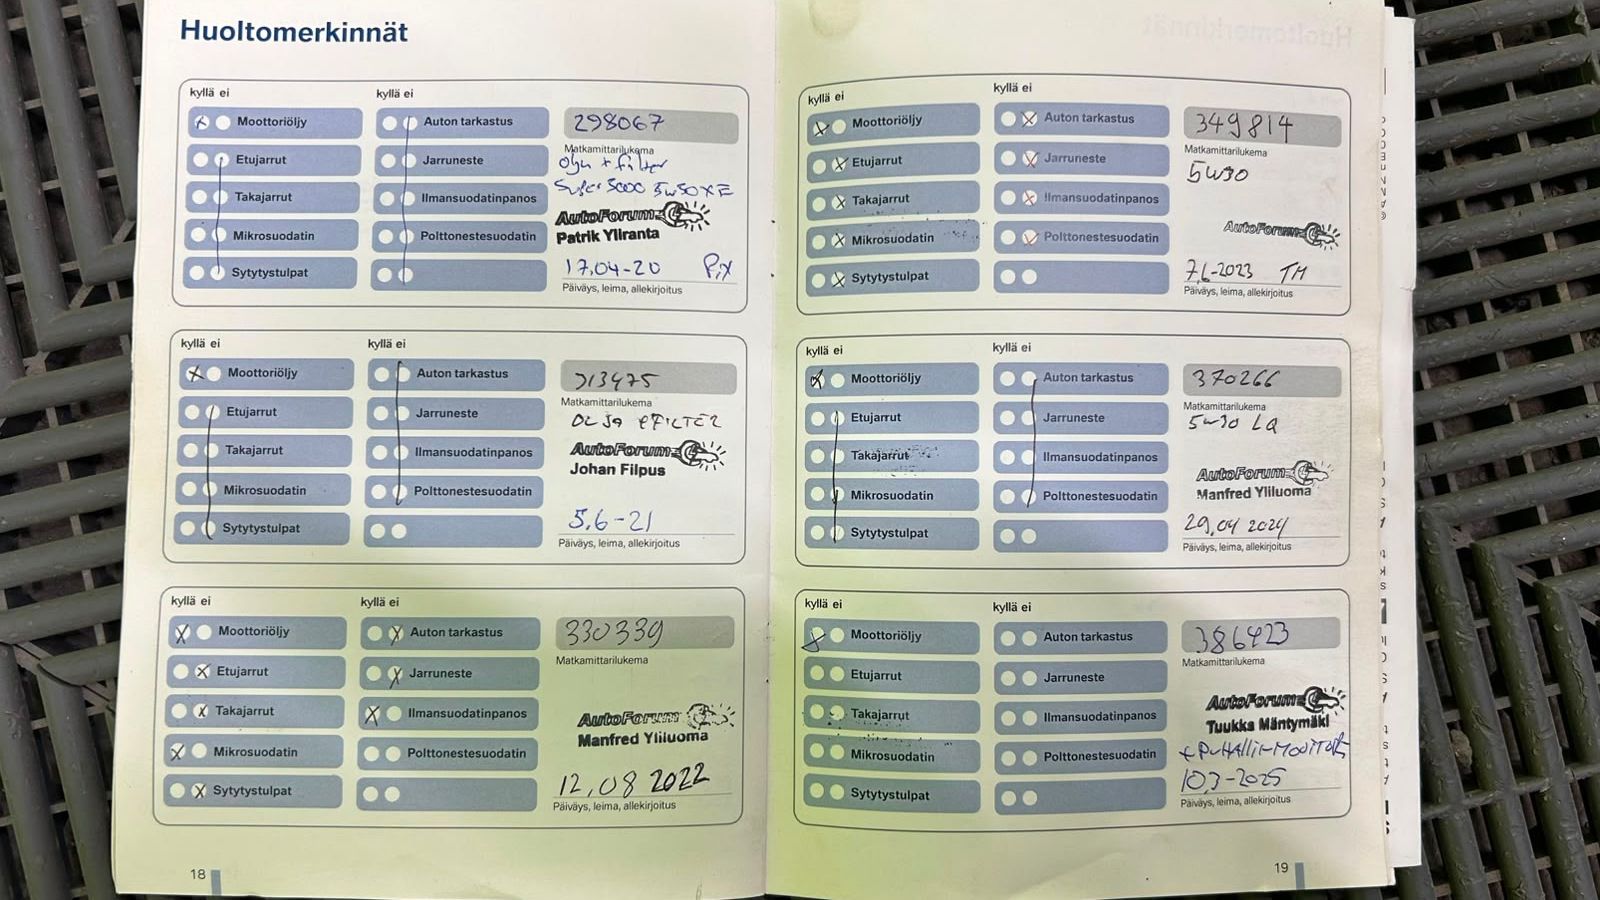 Huoltomerkinnät
kyllä ei
kyllä ei
Moottoriöljy
Auton tarkastus
298067
Etujarrut
Jarruneste
Matkamittarilukema
+ filter
Takajarrut
Ilmansuodatinpanos
Super 3000 5w30 XE
Mikrosuodatin
Polttonestesuodatin
AutoForum
Patrik Yliranta
Sytytystulpat
17.04-20
Päiväys, leima, allekirjoitus
kyllä ei
kyllä ei
Moottoriöljy
Auton tarkastus
313475
Etujarrut
Jarruneste
Matkamittarilukema
Takajarrut
Ilmansuodatinpanos
AutoForum
Johan Filpus
Mikrosuodatin
Polttonestesuodatin
Sytytystulpat
5.6-21
Päiväys, leima, allekirjoitus
kyllä ei
kyllä ei
Moottoriöljy
Auton tarkastus
330339
Etujarrut
Jarruneste
Matkamittarilukema
Takajarrut
Ilmansuodatinpanos
AutoForum
Manfred Yliluoma
Mikrosuodatin
Polttonestesuodatin
Sytytystulpat
12.08 2022
Päiväys, leima, allekirjoitus
18
kyllä ei
kyllä ei
Moottoriöljy
Auton tarkastus
349814
Etujarrut
Jarruneste
Matkamittarilukema
5w30
Takajarrut
Ilmansuodatinpanos
Mikrosuodatin
Polttonestesuodatin
AutoForum
Sytytystulpat
7.6-2023 TM
Päiväys, leima, allekirjoitus
kyllä ei
kyllä ei
Moottoriöljy
Auton tarkastus
370266
Etujarrut
Jarruneste
Matkamittarilukema
5w30 LA
Takajarrut
Ilmansuodatinpanos
AutoForum
Manfred Yliluoma
Mikrosuodatin
Polttonestesuodatin
Sytytystulpat
29.04 2024
Päiväys, leima, allekirjoitus
kyllä ei
kyllä ei
Moottoriöljy
Auton tarkastus
386423
Etujarrut
Jarruneste
Matkamittarilukema
Takajarrut
Ilmansuodatinpanos
AutoForum
Tuukka Mäntymäki
Mikrosuodatin
Polttonestesuodatin
Sytytystulpat
10.3-2025
Päiväys, leima, allekirjoitus
19